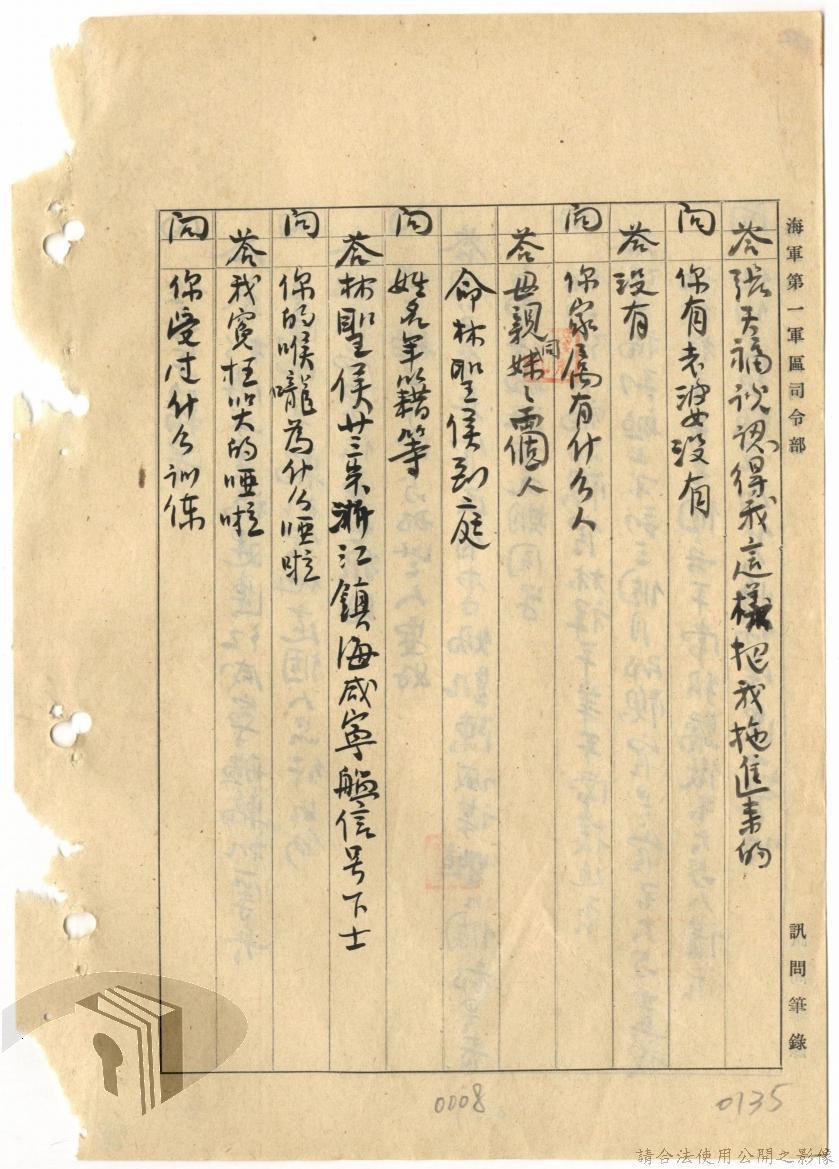 海軍第一軍區司令部 訊問筆錄
答 張天福說認得我這樣把我拖進来的
問 你有老婆没有
答 没有
問 你家属有什么人
答 母親同妹々兩個人
命林聖侯到庭
問 姓名年籍等
答 林聖侯廿三歲浙江鎮海咸寧艦信号下士
問 你的喉嚨為什么哑啦
答 我寃枉哭的哑啦
問 你受过什么训练
0008
0135
請合法使用公開之影像